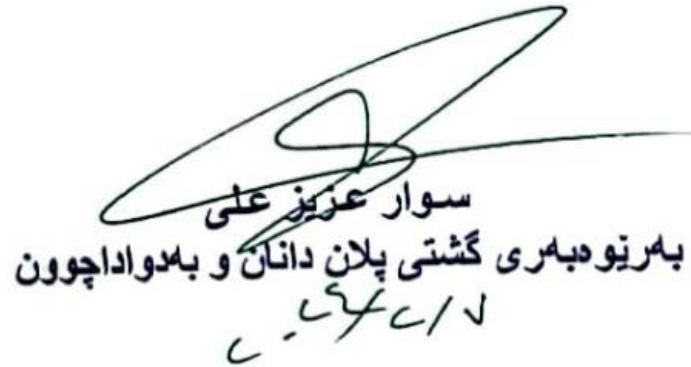 سوار عزیز علی
بەرێوەبەری گشتی پلان دانان و بەدواداچوون